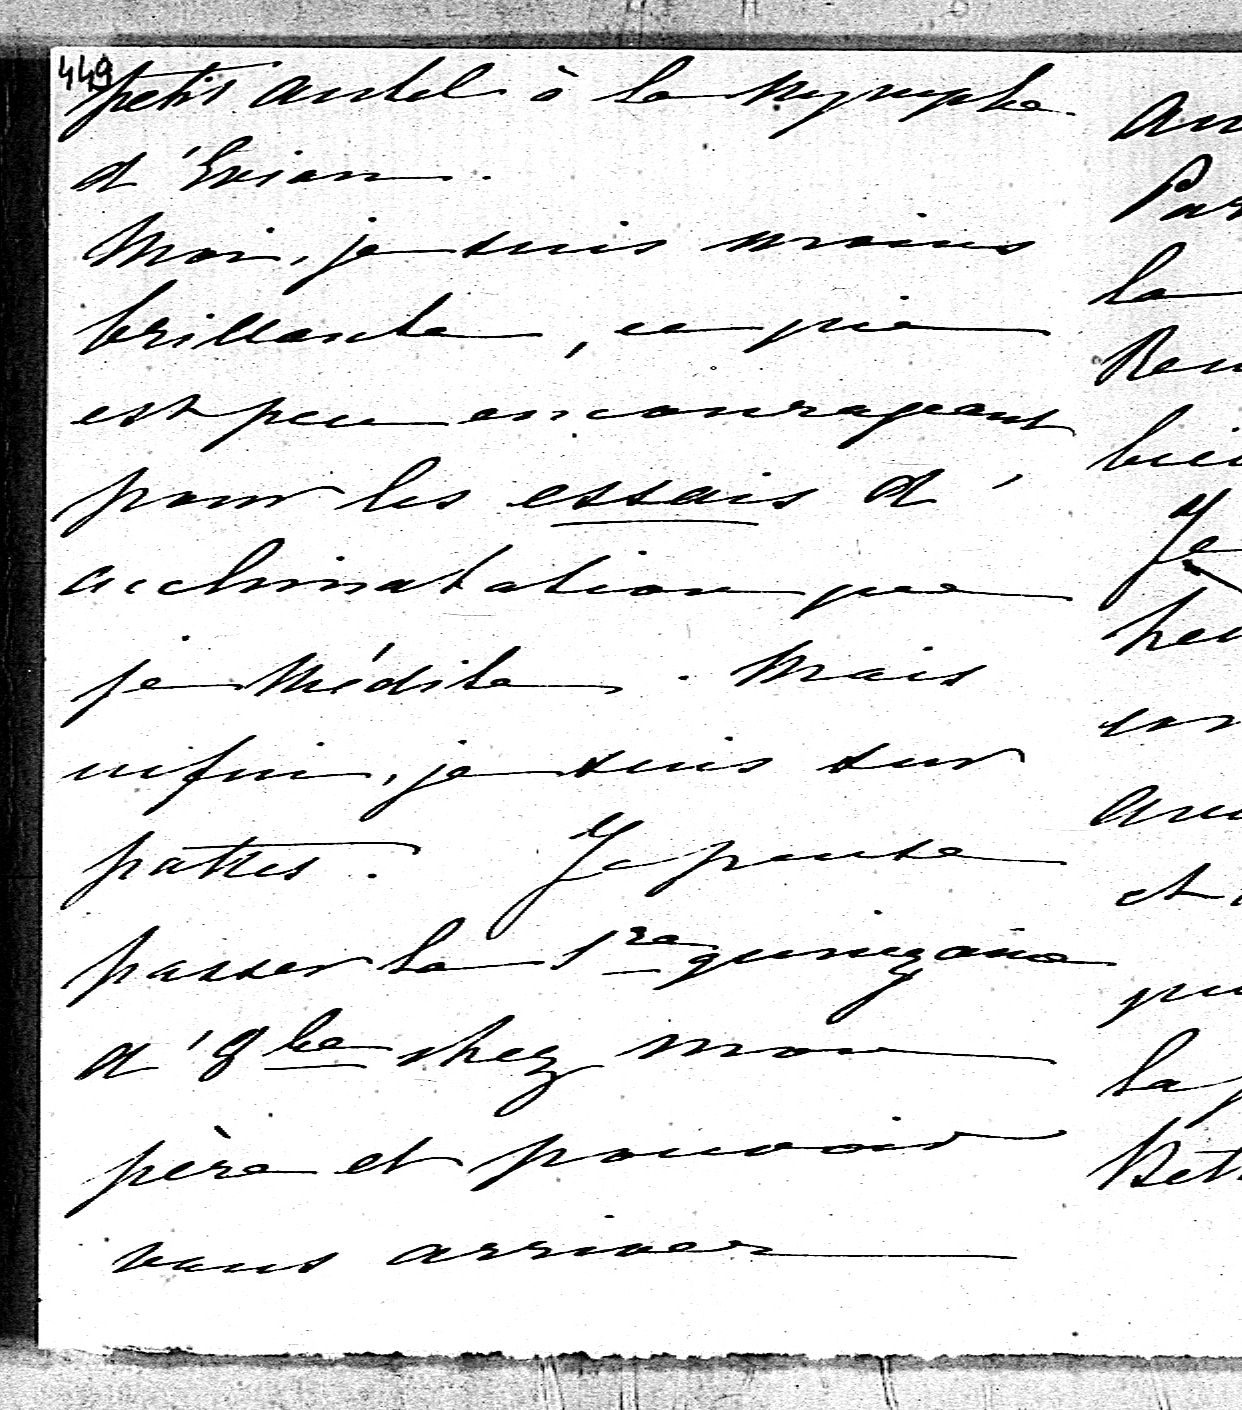 449
petit autel à la Nymphe
d'Evian.
Moi, je suis moins
brillante, ce qui
est peu encourageant
pour les essais d'
acclimatation que
je médite. Mais
enfin, je suis sur
pattes. Je pense
passer la 1re quinzaine
d'8bre chez mon
père et pouvoir
vous arriver
Par
la
bie
Je
et
la